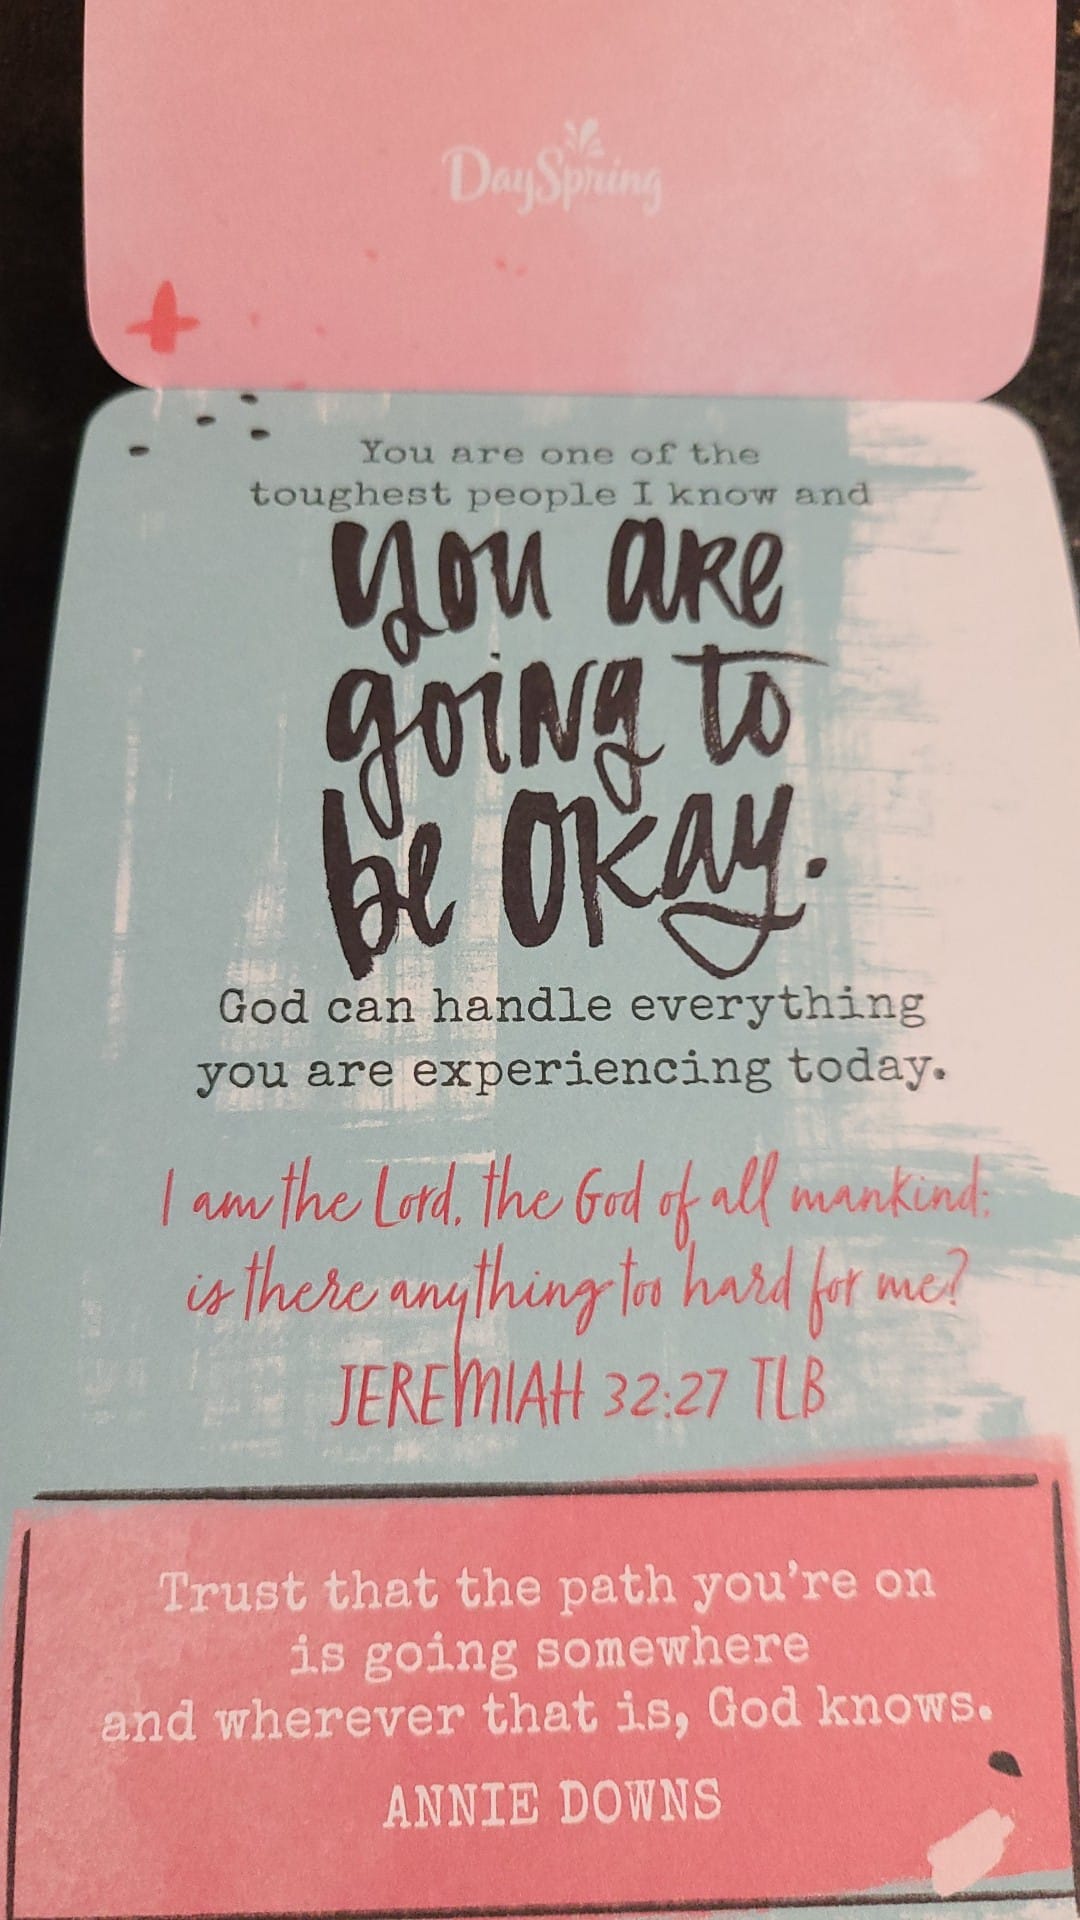 DaySpring
You are one of the
toughest people I know and
you are
going to
be okay.
God can handle everything
you are experiencing today.
I am the Lord, the God of all mankind;
is there anything too hard for me?
JEREMIAH 32:27 TLB
Trust that the path you're on
is going somewhere
and wherever that is, God knows.
ANNIE DOWNS